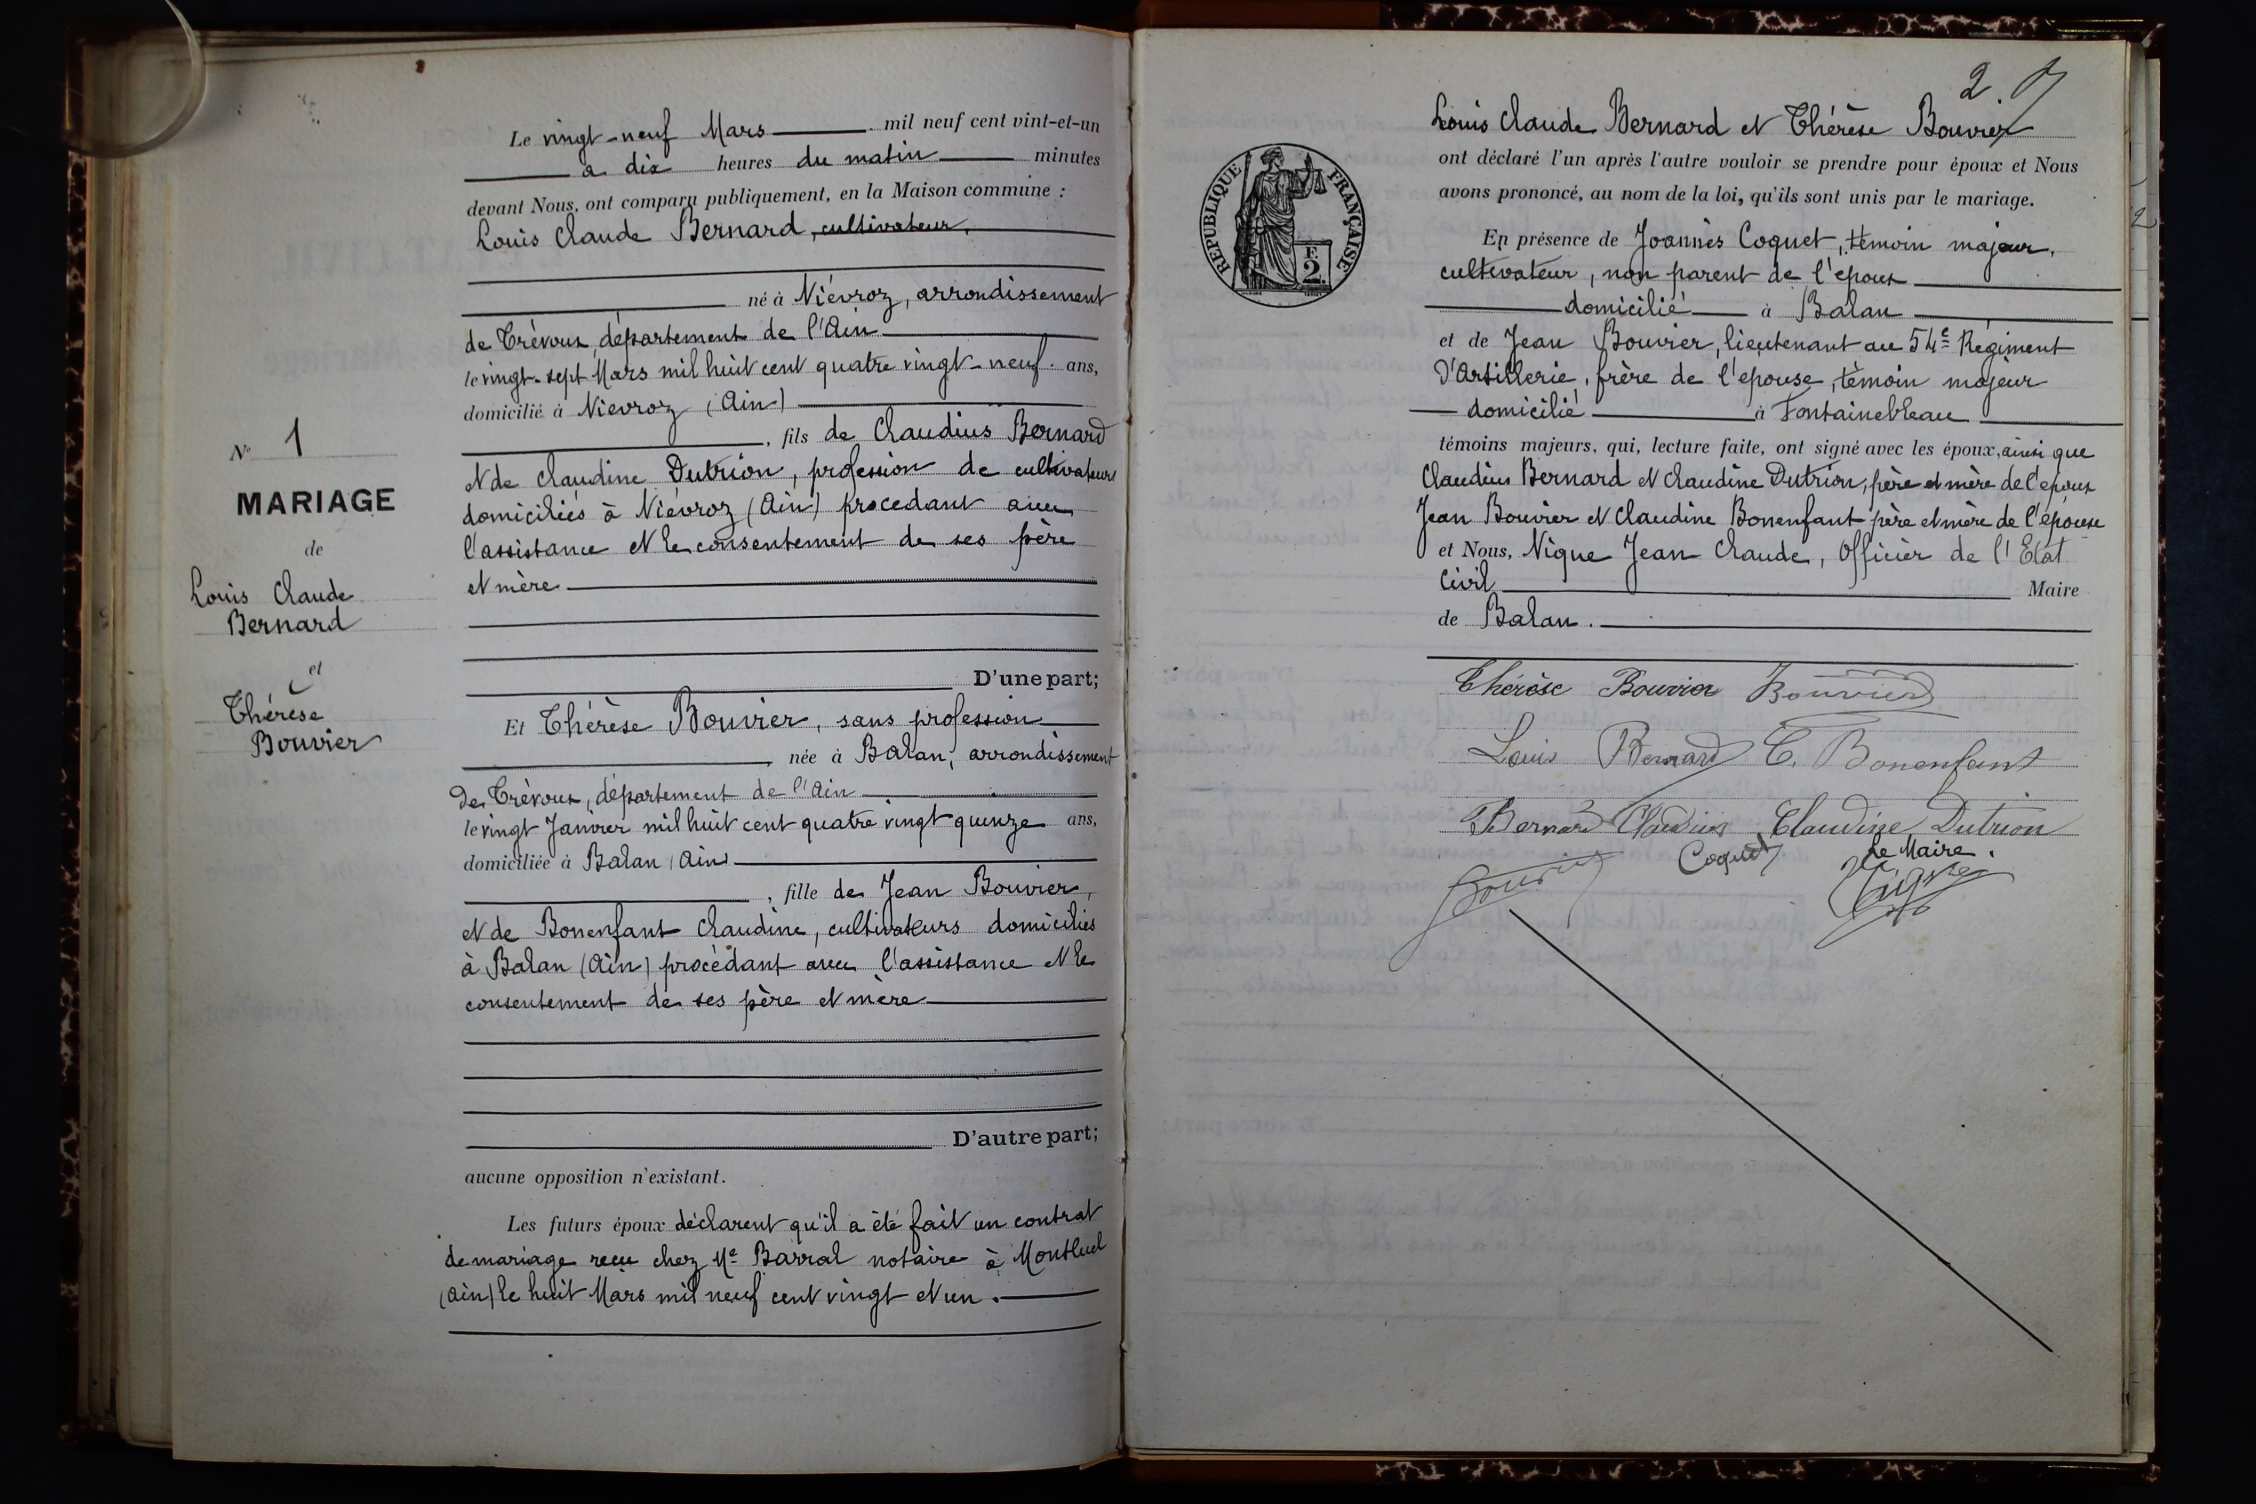 Le vingt-neuf Mars mil neuf cent vint-et-un
a dix heures du matin minutes
devant Nous, ont comparu publiquement, en la Maison commune :
Louis Claude Bernard, cultivateur,
né à Niévroz, arrondissement
de Trévoux, département de l'Ain
le vingt-sept Mars mil huit cent quatre vingt-neuf. ans,
domicilié à Nievroz (Ain)
, fils de Claudius Bernard
et de Claudine Dutrion, profession de cultivateurs
domiciliés à Niévroz (Ain) procedant avec
l'assistance et le consentement de ses père
et mère
D'une part;
N° 1
MARIAGE
de
Louis Claude
Bernard
et
Thérèse
Bouvier
Et Thérèse Bouvier, sans profession
, née à Balan, arrondissement
de Trévoux, département de l'Ain
le vingt Janvier mil huit cent quatre vingt quinze ans,
domiciliée à Balan (Ain)
, fille de Jean Bouvier,
et de Bonenfant Claudine, cultivateurs domiciliés
à Balan (Ain) procédant avec l'assistance et le
consentement de ses père et mère
D'autre part;
aucune opposition n'existant.
Les futurs époux déclarent qu'il a été fait un contrat
de mariage reçu chez Me Barral notaire à Montluel
(Ain) le huit Mars mil neuf cent vingt et un.
2
RÉPUBLIQUE FRANÇAISE
E
2
Louis Claude Bernard et Thérèse Bouvier
ont déclaré l'un après l'autre vouloir se prendre pour époux et Nous
avons prononcé, au nom de la loi, qu'ils sont unis par le mariage.
En présence de Joannès Coquet, témoin majeur,
cultivateur, non parent de l'epoux
domicilié à Balan
et de Jean Bouvier, lieutenant au 54e Régiment
D'Artillerie, frère de l'epouse, témoin majeur
domicilié à Fontainebleau
témoins majeurs, qui, lecture faite, ont signé avec les époux, ainsi que
Claudius Bernard et Claudine Dutrion, père et mère de l'epoux
Jean Bouvier et Claudine Bonenfant père et mère de l'épouse
et Nous, Nique Jean Claude, Officier de l'Etat
Civil Maire
de Balan.
Thérèse Bouvier Bouvier
Louis Bernard C. Bonenfant
Bernard Claudius Claudine Dutrion
Coquet Le Maire.
Bouvier Nique